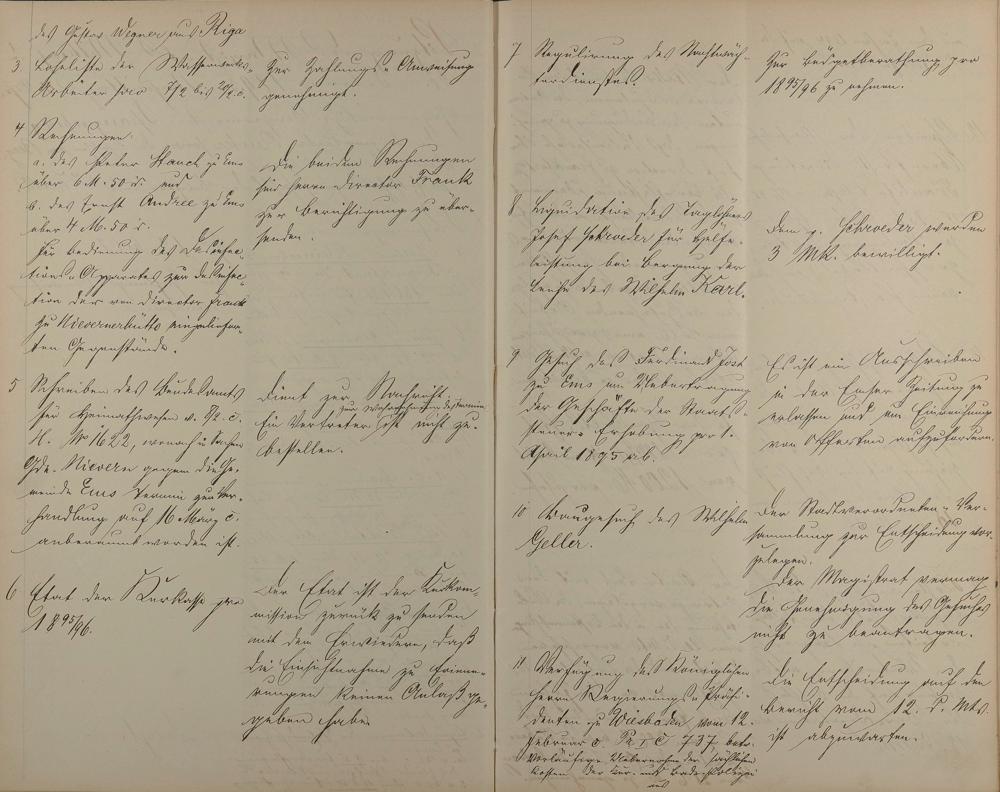 des Gustav Wegner aus Riga
3 Lohnliste der Wasserwerks-
Arbeiter pro 7/2 bis 20/2. c.
Zur Zahlungs-Anweisung
genehmigt.
4 Rechnungen
a. des Peter Stauch zu Ems
über 6 M. 50 d. und
b. des Ernst Andree zu Ems
über 4 M. 50 d.
für Bedienung des Desinfec-
tions-Apparates zur Desinfec-
tion der von Director Frank
zu Nievernerhütte eingeliefer-
ten Gegenstände.
Die beiden Rechnungen
sind Herrn Director Frank
zur Berichtigung zu über-
senden.
5 Schreiben des Bundesamts
für Heimathwesen v. 9/2. c.
N. No 1622, wonach in Sachen
Gde. Nievern gegen die Ge-
meinde Ems Termin zur Ver-
handlung auf 16 März c.
anberaumt worden ist.
Dient zur Nachricht.
Ein Vertreter zur Wahrnehmung des Termins
ist nicht zu
bestellen.
6 Etat der Kurkasse pro
1895/96.
Der Etat ist der Kurkom-
mission zurück zu senden
mit dem Erwiedern, daß
die Einsichtnahme zu Erinne-
rungen keinen Anlaß ge-
geben habe.
7 Regulirung des Nachtwäch-
terdienstes.
Zur Büdgetberathung pro
1895/96 zu nehmen.
8 Liquidation des Taglöhners
Josef Schroeder für Hülfe-
leistung bei Bergung der
Leiche des Wilhelm Karl.
Dem p. Schroeder werden
3 Mk. bewilligt.
9 Gesuch des Ferdinand Jost
zu Ems um Uebertragung
der Geschäfte der Staats-
steuer-Erhebung pro 1.
April 1895 ab.
Es ist ein Ausschreiben
in der Emser Zeitung zu
erlassen und um Einreichung
von Offerten aufzufordern.
10 Baugesuch des Wilhelm
Geller.
Der Stadtverordneten-Ver-
sammlung zur Entscheidung vor-
zulegen.
Der Magistrat vermag
die Genehmigung des Gesuches
nicht zu beantragen.
11 Verfügung des Königlichen
Herrn Regierungs-Präsi-
denten zu Wiesbaden vom 12.
Februar c Pr. I C 737 betr.
Vorläufige Uebernahme der sächlichen
Kosten der Kur- und Bade-Polizei
aus
Die Entscheidung auf den
Bericht vom 12. d. Mts.
ist abzuwarten.